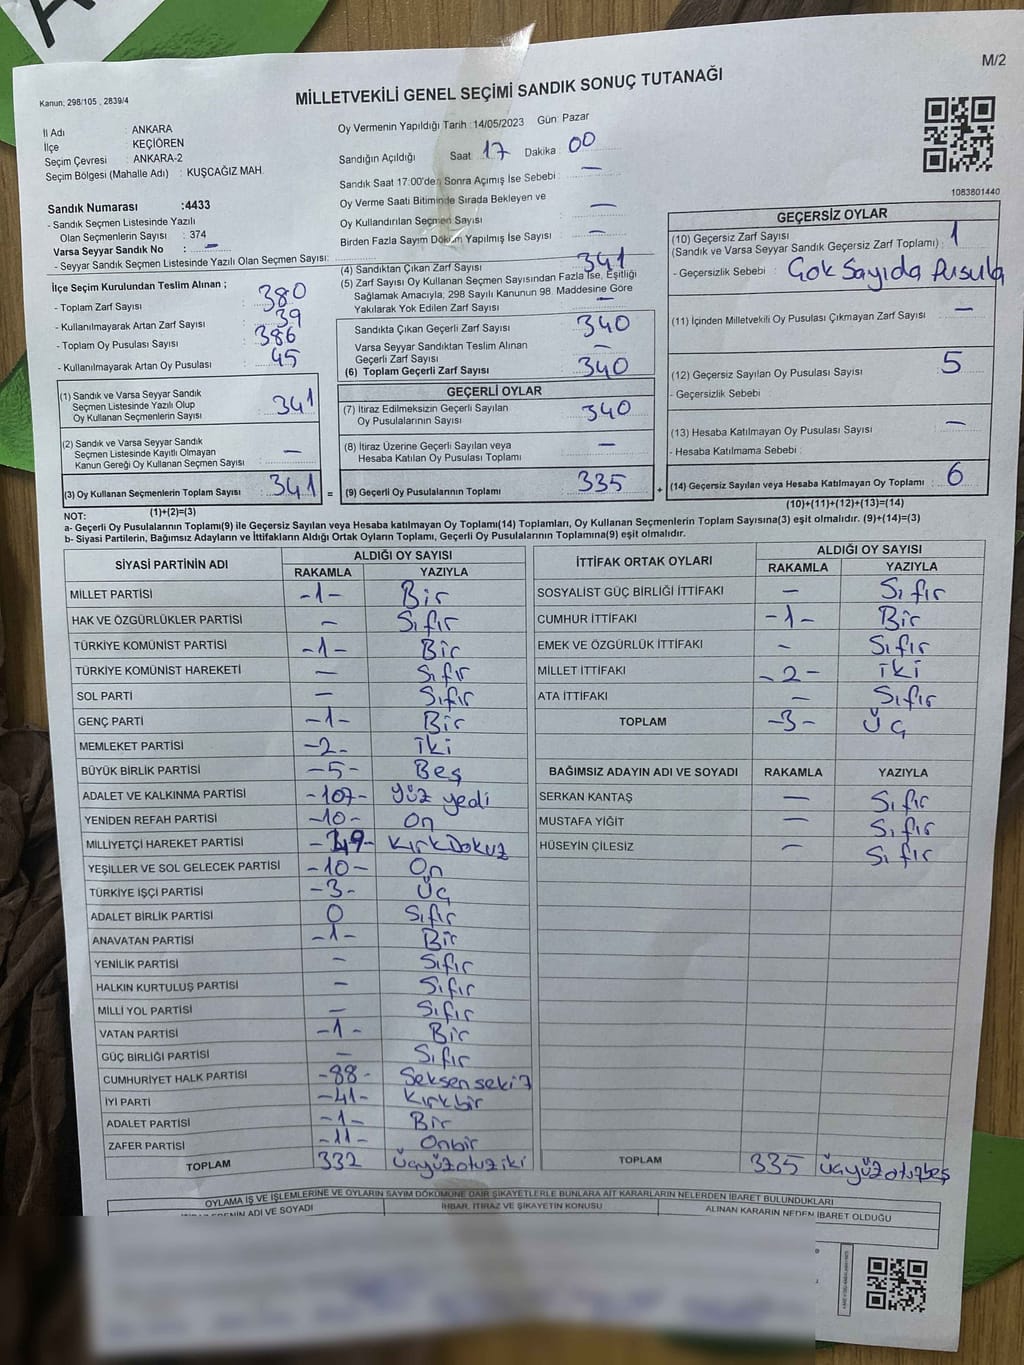 M/2
Kanun: 298/105 , 2839/4
MİLLETVEKİLİ GENEL SEÇİMİ SANDIK SONUÇ TUTANAĞI
İl Adı : ANKARA
İlçe : KEÇİÖREN
Seçim Çevresi : ANKARA-2
Seçim Bölgesi (Mahalle Adı) : KUŞCAĞIZ MAH.
Sandık Numarası :4433
- Sandık Seçmen Listesinde Yazılı
Olan Seçmenlerin Sayısı : 374
Varsa Seyyar Sandık No : —
- Seyyar Sandık Seçmen Listesinde Yazılı Olan Seçmen Sayısı:
Oy Vermenin Yapıldığı Tarih :14/05/2023 Gün: Pazar
Sandığın Açıldığı Saat 17 Dakika : 00
Sandık Saat 17:00'den Sonra Açımış İse Sebebi : —
Oy Verme Saati Bitiminde Sırada Bekleyen ve
Oy Kullandırılan Seçmen Sayısı : —
Birden Fazla Sayım Döküm Yapılmış İse Sayısı : —
1083801440
İlçe Seçim Kurulundan Teslim Alınan ;
- Toplam Zarf Sayısı : 380
- Kullanılmayarak Artan Zarf Sayısı : 39
- Toplam Oy Pusulası Sayısı : 386
- Kullanılmayarak Artan Oy Pusulası : 45
(1) Sandık ve Varsa Seyyar Sandık
Seçmen Listesinde Yazılı Olup
Oy Kullanan Seçmenlerin Sayısı : 341
(2) Sandık ve Varsa Seyyar Sandık
Seçmen Listesinde Kayıtlı Olmayan
Kanun Gereği Oy Kullanan Seçmen Sayısı : —
(3) Oy Kullanan Seçmenlerin Toplam Sayısı : 341 =
(1)+(2)=(3)
(4) Sandıktan Çıkan Zarf Sayısı : 341
(5) Zarf Sayısı Oy Kullanan Seçmen Sayısından Fazla İse, Eşitliği
Sağlamak Amacıyla; 298 Sayılı Kanunun 98. Maddesine Göre
Yakılarak Yok Edilen Zarf Sayısı : —
Sandıkta Çıkan Geçerli Zarf Sayısı : 340
Varsa Seyyar Sandıktan Teslim Alınan
Geçerli Zarf Sayısı : —
(6) Toplam Geçerli Zarf Sayısı : 340
GEÇERLİ OYLAR
(7) İtiraz Edilmeksizin Geçerli Sayılan
Oy Pusulalarının Sayısı : 340
(8) İtiraz Üzerine Geçerli Sayılan veya
Hesaba Katılan Oy Pusulası Toplamı : —
(9) Geçerli Oy Pusulalarının Toplamı : 335 +
GEÇERSİZ OYLAR
(10) Geçersiz Zarf Sayısı
(Sandık ve Varsa Seyyar Sandık Geçersiz Zarf Toplamı) : 1
- Geçersizlik Sebebi : Çok Sayıda Pusula
(11) İçinden Milletvekili Oy Pusulası Çıkmayan Zarf Sayısı : —
(12) Geçersiz Sayılan Oy Pusulası Sayısı : 5
- Geçersizlik Sebebi :
(13) Hesaba Katılmayan Oy Pusulası Sayısı : —
- Hesaba Katılmama Sebebi :
(14) Geçersiz Sayılan veya Hesaba Katılmayan Oy Toplamı : 6
(10)+(11)+(12)+(13)=(14)
NOT:
a- Geçerli Oy Pusulalarının Toplamı(9) ile Geçersiz Sayılan veya Hesaba katılmayan Oy Toplamı(14) Toplamları, Oy Kullanan Seçmenlerin Toplam Sayısına(3) eşit olmalıdır. (9)+(14)=(3)
b- Siyasi Partilerin, Bağımsız Adayların ve İttifakların Aldığı Ortak Oyların Toplamı, Geçerli Oy Pusulalarının Toplamına(9) eşit olmalıdır.
SİYASİ PARTİNİN ADI ALDIĞI OY SAYISI
RAKAMLA YAZIYLA
MİLLET PARTİSİ -1- Bir
HAK VE ÖZGÜRLÜKLER PARTİSİ — Sıfır
TÜRKİYE KOMÜNİST PARTİSİ -1- Bir
TÜRKİYE KOMÜNİST HAREKETİ — Sıfır
SOL PARTİ — Sıfır
GENÇ PARTİ -1- Bir
MEMLEKET PARTİSİ -2- İki
BÜYÜK BİRLİK PARTİSİ -5- Beş
ADALET VE KALKINMA PARTİSİ -107- Yüz yedi
YENİDEN REFAH PARTİSİ -10- On
MİLLİYETÇİ HAREKET PARTİSİ -49- Kırk Dokuz
YEŞİLLER VE SOL GELECEK PARTİSİ -10- On
TÜRKİYE İŞÇİ PARTİSİ -3- Üç
ADALET BİRLİK PARTİSİ 0 Sıfır
ANAVATAN PARTİSİ -1- Bir
YENİLİK PARTİSİ - Sıfır
HALKIN KURTULUŞ PARTİSİ - Sıfır
MİLLİ YOL PARTİSİ — Sıfır
VATAN PARTİSİ -1- Bir
GÜÇ BİRLİĞİ PARTİSİ — Sıfır
CUMHURİYET HALK PARTİSİ -88- Seksen sekiz
İYİ PARTİ -41- Kırk bir
ADALET PARTİSİ -1- Bir
ZAFER PARTİSİ -11- Onbir
TOPLAM 332 Üçyüzotuziki
İTTİFAK ORTAK OYLARI ALDIĞI OY SAYISI
RAKAMLA YAZIYLA
SOSYALİST GÜÇ BİRLİĞİ İTTİFAKI — Sıfır
CUMHUR İTTİFAKI -1- Bir
EMEK VE ÖZGÜRLÜK İTTİFAKI - Sıfır
MİLLET İTTİFAKI -2- iki
ATA İTTİFAKI — Sıfır
TOPLAM -3- Üç
BAĞIMSIZ ADAYIN ADI VE SOYADI RAKAMLA YAZIYLA
SERKAN KANTAŞ — Sıfır
MUSTAFA YİĞİT — Sıfır
HÜSEYİN ÇİLESİZ — Sıfır
TOPLAM 335 Üçyüzotuzbeş
OYLAMA İŞ VE İŞLEMLERİNE VE OYLARIN SAYIM DÖKÜMÜNE DAİR ŞİKAYETLERLE BUNLARA AİT KARARLARIN NELERDEN İBARET BULUNDUKLARI
ADI VE SOYADI İHBAR, İTİRAZ VE ŞİKAYETİN KONUSU ALINAN KARARIN NEDEN İBARET OLDUĞU